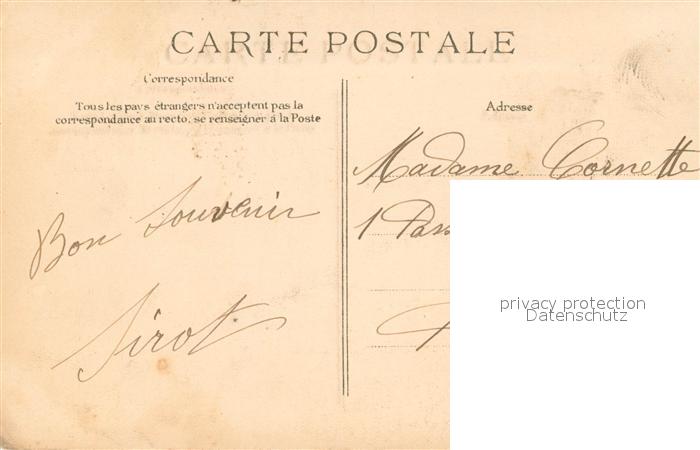 CARTE POSTALE
Correspondance
Tous les pays étrangers n'acceptent pas la
correspondance au recto, se renseigner à la Poste
Adresse
Bon Souvenir
Sirot
Madame Cornette
1
privacy protection
Datenschutz